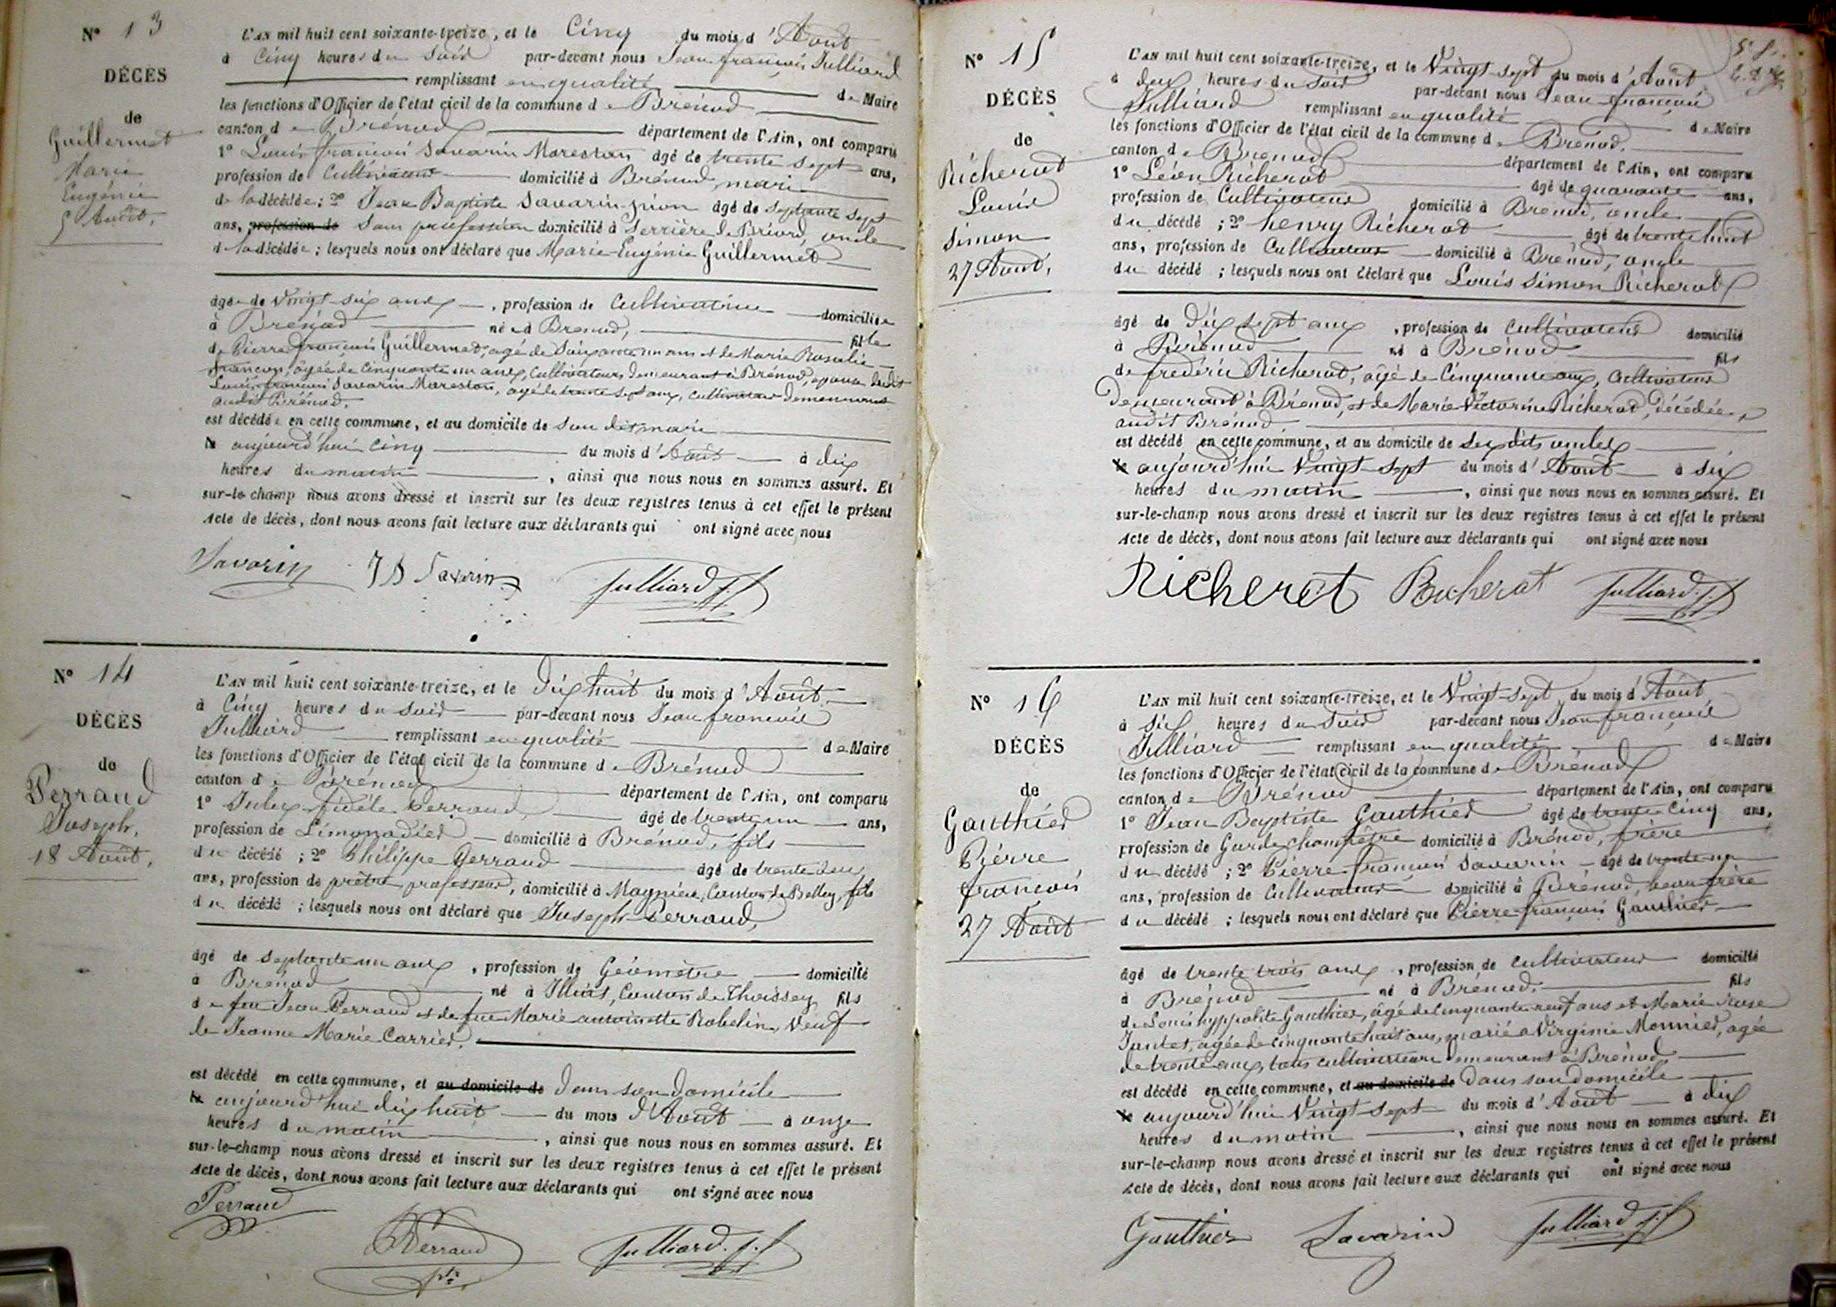 N° 13
DÉCÈS
de
Guillermet
Marie
Eugénie
5 Août.
L'AN mil huit cent soixante-treize, et le Cinq du mois d'Août
à Cinq heures du soir par-devant nous Jean françois Julliard
remplissant en qualité de Maire
les fonctions d'Officier de l'état civil de la commune de Brénod
canton de Brénod département de l'Ain, ont comparu
1° Louis françois Savarin Marestan âgé de trente sept ans,
profession de Cultivateur domicilié à Brénod, mari
de la décédée ; 2° Jean Baptiste Savarin âgé de septante sept
ans, profession de Sans profession domicilié à oncle
de la décédée ; lesquels nous ont déclaré que Marie-Eugénie Guillermet
âgée de Vingt-six ans, profession de Cultivatrice domiciliée
à Brénod née à Brénod, fille
de Pierre françois Guillermet, âgé de soixante un ans et de Marie Rosalie
âgée de cinquante un ans, Cultivateurs demeurant à Brénod, épouse dudit
Louis françois Savarin Marestan, âgé de trente sept ans, cultivateur demeurant
audit Brénod.
est décédée en cette commune, et au domicile de son dit mari
le aujourd'hui cinq du mois d'Août à dix
heures du matin, ainsi que nous nous en sommes assuré. Et
sur-le-champ nous avons dressé et inscrit sur les deux registres tenus à cet effet le présent
Acte de décès, dont nous avons fait lecture aux déclarants qui ont signé avec nous
Savarin J B Savarin Julliard J. f
N° 14
DÉCÈS
de
Perraud
Joseph,
18 Août.
L'AN mil huit cent soixante-treize, et le dix huit du mois d'Août
à Cinq heures du soir par-devant nous Jean françois
Julliard remplissant en qualité de Maire
les fonctions d'Officier de l'état civil de la commune de Brénod
canton de Brénod département de l'Ain, ont comparu
1° Jules fidèle Perraud, âgé de trente un ans,
profession de Limonadier domicilié à Brénod, fils
du décédé ; 2° Philippe Perraud âgé de trente deux
ans, profession de prêtre professeur, domicilié à Canton de Belley, fils
du décédé ; lesquels nous ont déclaré que Joseph Perraud,
âgé de septante un ans, profession de Géomètre domicilié
à Brénod né à Illiat, Canton de Thoissey fils
de feu Jean Perraud et de feue Marie antoinette Robelin, Veuf
de Jeanne Marie Carrier.
est décédé en cette commune, et au domicile de dans son domicile
le aujourd'hui dix huit du mois d'Août à onze
heures du matin, ainsi que nous nous en sommes assuré. Et
sur-le-champ nous avons dressé et inscrit sur les deux registres tenus à cet effet le présent
Acte de décès, dont nous avons fait lecture aux déclarants qui ont signé avec nous
Perraud Perraud Julliard. J. f
N° 15
DÉCÈS
de
Richerot
Louis
Simon
27 Août.
L'AN mil huit cent soixante-treize, et le Vingt-sept du mois d'Août
à deux heures du soir par-devant nous Jean françois
Julliard remplissant en qualité de Maire
les fonctions d'Officier de l'état civil de la commune de Brénod.
canton de Brénod département de l'Ain, ont comparu
1° Léon Richerot âgé de quarante ans,
profession de Cultivateur domicilié à Brénod, oncle
du décédé ; 2° henry Richerot âgé de trente huit
ans, profession de Cultivateur domicilié à Brénod, oncle
du décédé ; lesquels nous ont déclaré que Louis Simon Richerot
âgé de Dix sept ans, profession de Cultivateur domicilié
à Brénod né à Brénod fils
de frédéric Richerot, âgé de Cinquante ans, Cultivateur
demeurant à Brénod, et de Marie Victorine Richerot, décédée
audit Brénod.
est décédé en cette commune, et au domicile de ses dits oncles
le aujourd'hui Vingt sept du mois d'Août à six
heures du matin, ainsi que nous nous en sommes assuré. Et
sur-le-champ nous avons dressé et inscrit sur les deux registres tenus à cet effet le présent
Acte de décès, dont nous avons fait lecture aux déclarants qui ont signé avec nous
Richerot Richerot Julliard. J. f
N° 16
DÉCÈS
de
Gauthier
Pierre
françois
27 Août
L'AN mil huit cent soixante-treize, et le Vingt-sept du mois d'Août
à six heures du soir par-devant nous Jean françois
Julliard remplissant en qualité de Maire
les fonctions d'Officier de l'état civil de la commune de Brénod
canton de Brénod département de l'Ain, ont comparu
1° Jean Baptiste Gauthier âgé de trente cinq ans,
profession de Garde champêtre domicilié à Brénod, frère
du décédé ; 2° Pierre françois Savarin âgé de trente un
ans, profession de Cultivateur domicilié à Brénod, beau frère
du décédé ; lesquels nous ont déclaré que Pierre françois Gauthier
âgé de trente trois ans, profession de Cultivateur domicilié
à Brénod né à Brénod. fils
de Louis hyppolite Gauthier, âgé de Cinquante neuf ans et Marie Rose
Jantet, agée de cinquante huit ans, marié à Virginie Monnier, agée
de trente ans, tous cultivateurs demeurant à Brénod.
est décédé en cette commune, et au domicile de Dans son domicile
le aujourd'hui Vingt sept du mois d'Août à dix
heures du matin, ainsi que nous nous en sommes assuré. Et
sur-le-champ nous avons dressé et inscrit sur les deux registres tenus à cet effet le présent
Acte de décès, dont nous avons fait lecture aux déclarants qui ont signé avec nous
Gauthier Savarin Julliard J. f